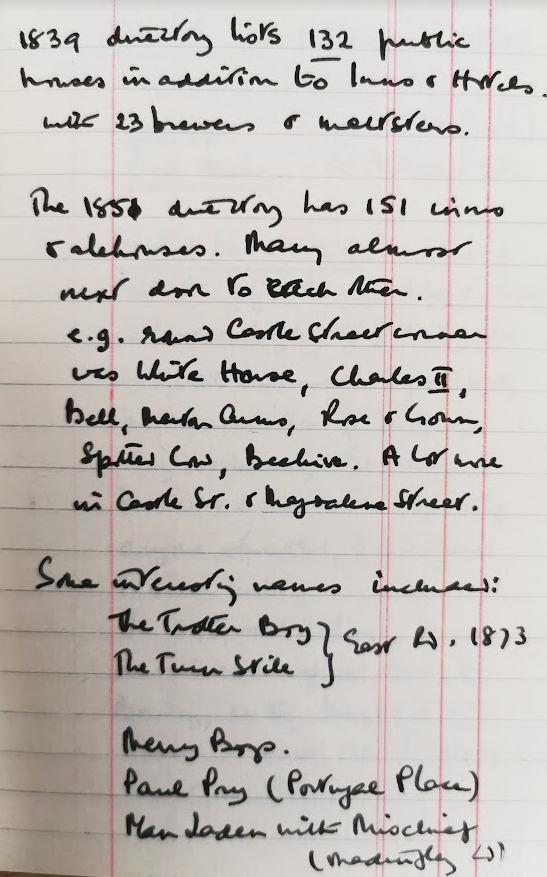 1839 directory lists 132 public
houses in addition to Inns & Hotels.
with 23 brewers & maltsters.
The 1851 directory has 151 inns
& alehouses. Many almost
next door to each other.
e.g. round Castle Street corner
was White House, Charles II,
Bell, Merton Arms, Rose & Crown,
Spotted Cow, Beehive. A lot more
in Castle St. & Magdalene Street.
Some interesting names included:
The Trotter Boy } East Rd. 1873
The Turn Stile
Merry Boys.
Paul Pry (Portugal Place)
Man Laden with Mischief
(Madingley